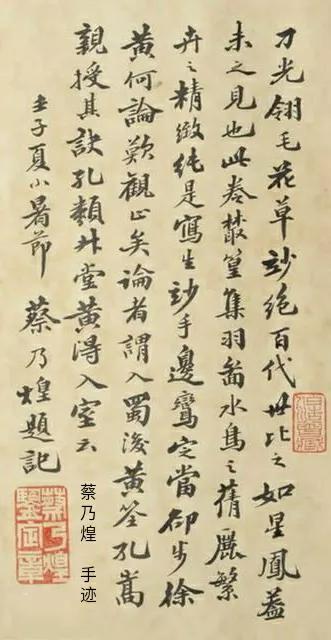 刁光翎毛花草妙絕百代世比之如星鳳蓋
未之見也此卷叢篁集羽水鳥之蒨麗繁
卉之精緻純是寫生妙手邊鸞定當卻步徐
黃何論歎觀止矣論者謂入蜀後黃筌孔嵩
親授其訣孔類升堂黃得入室云
壬子夏小暑節 蔡乃煌題記
蔡乃煌
鑒定章
蔡乃煌 手迹